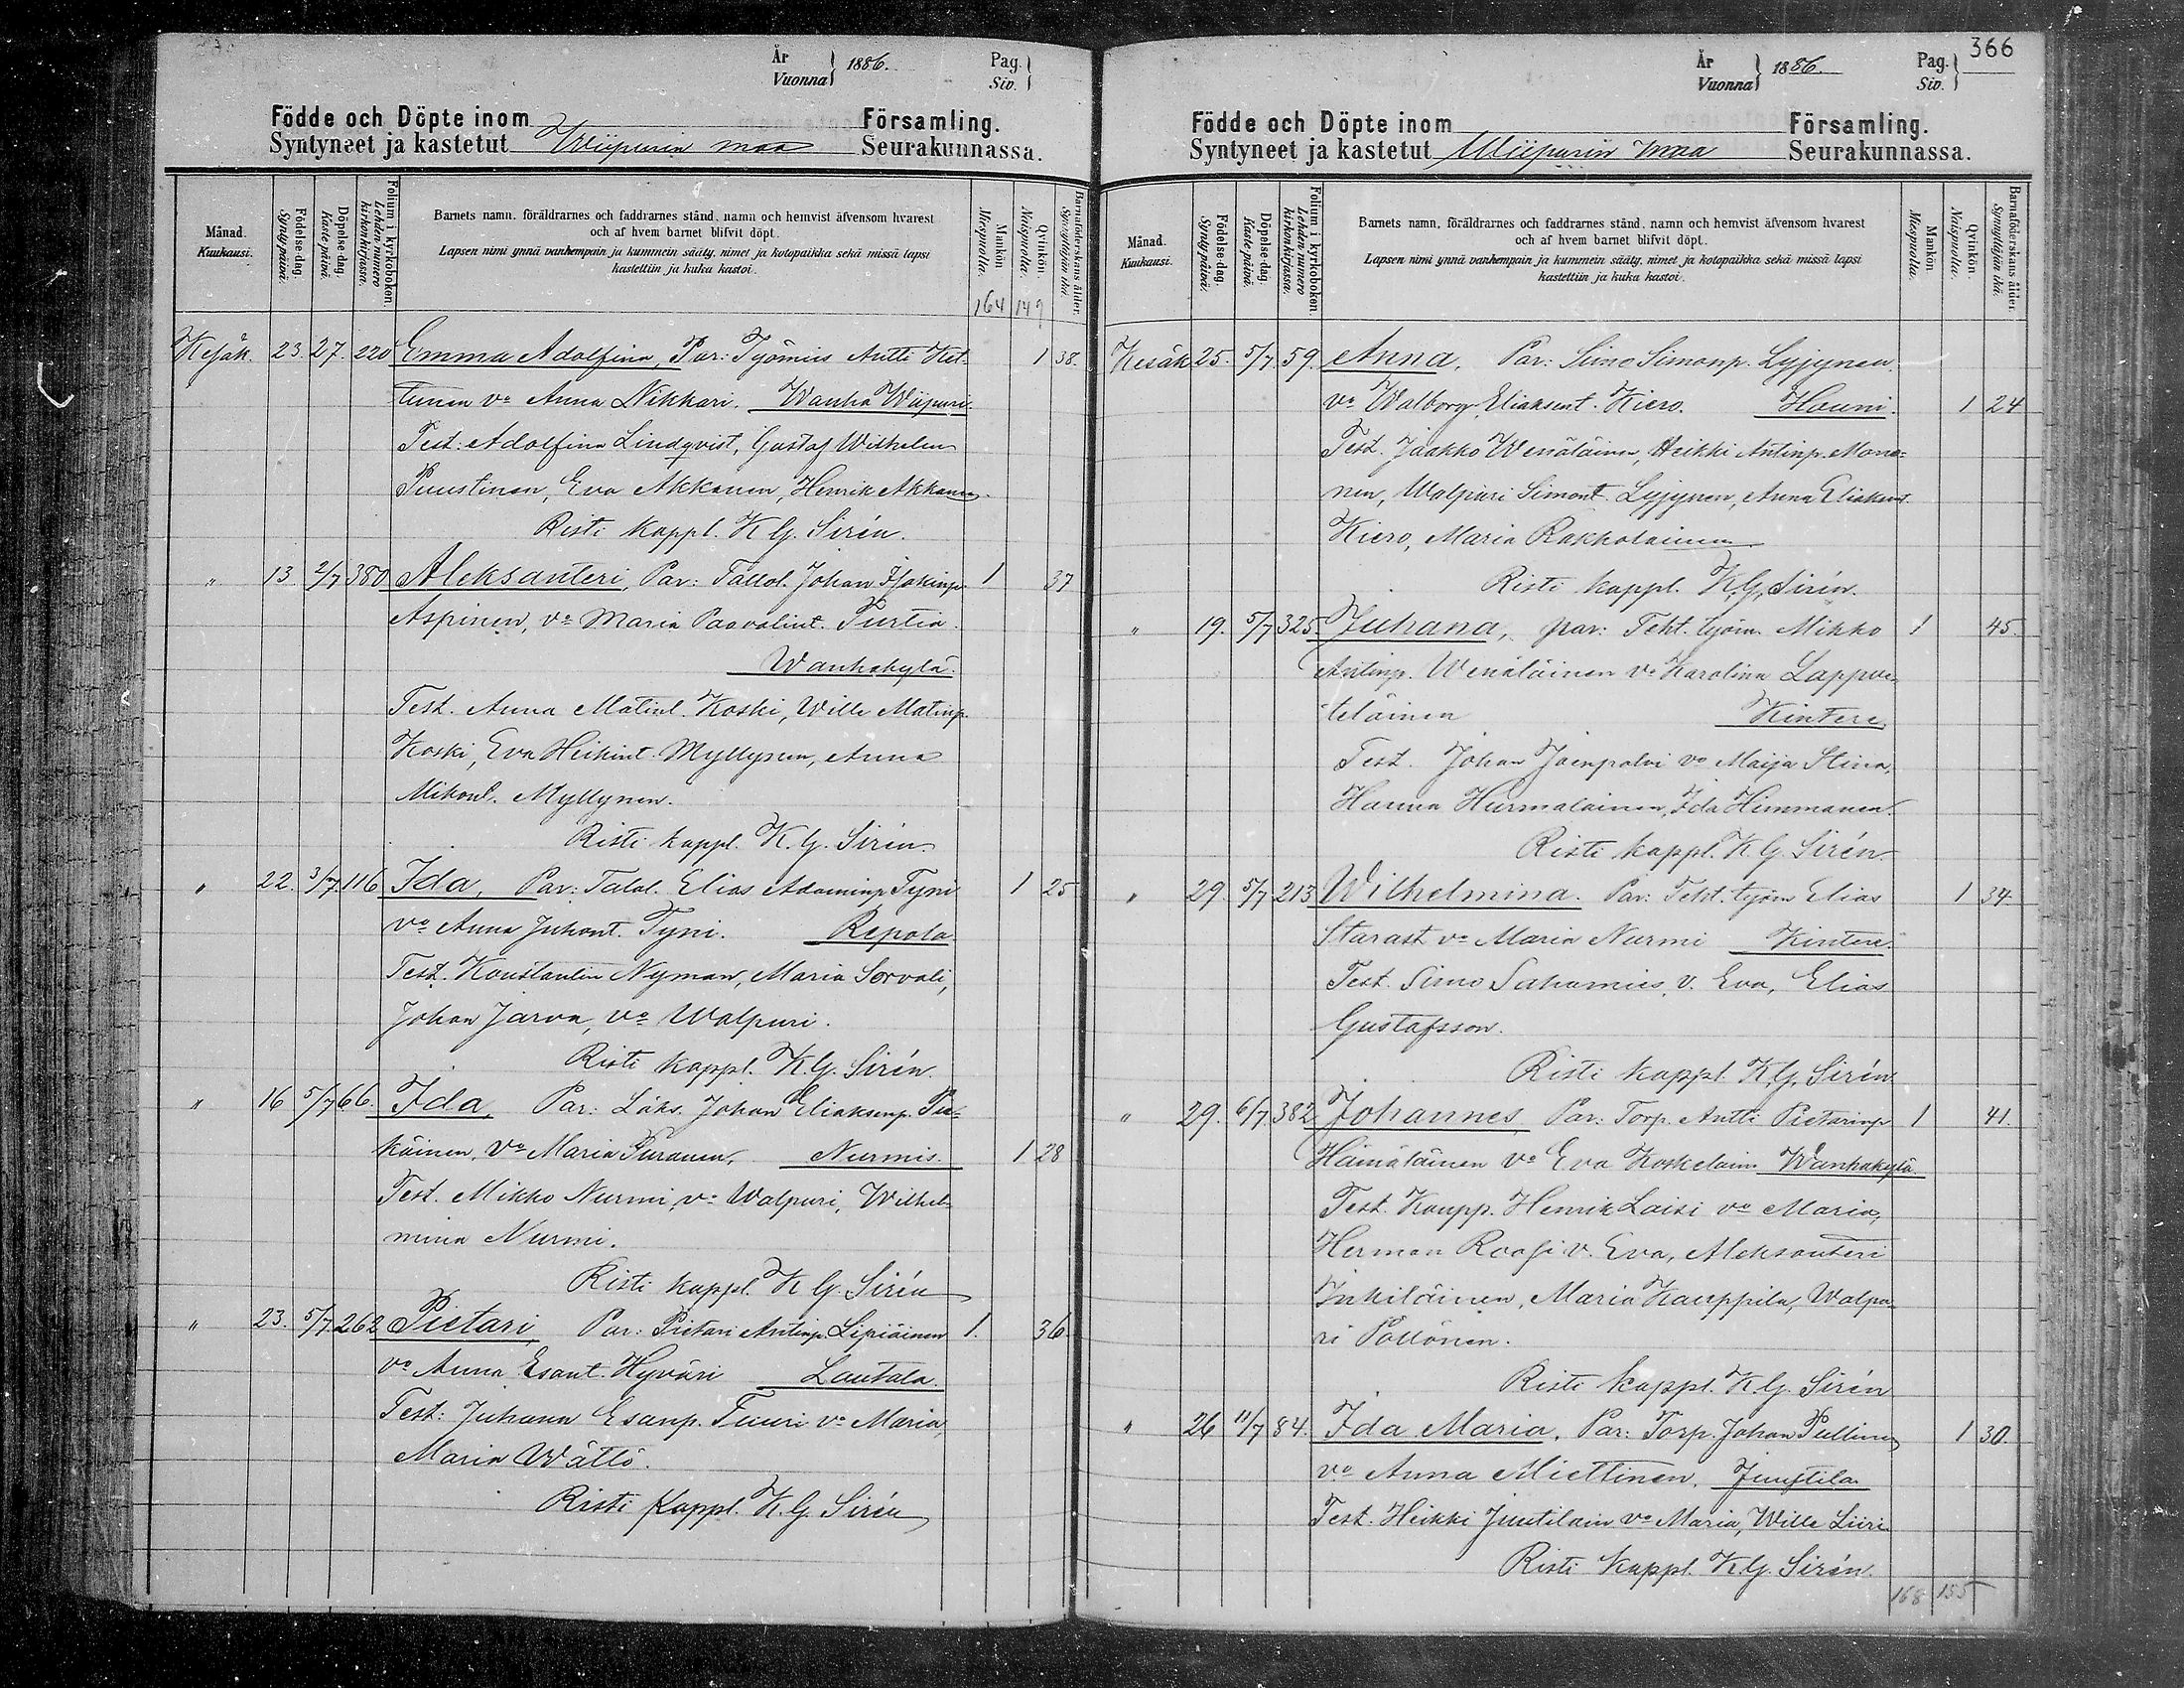 År
Vuonna } 1886. Pag.
Siv. }
Födde och Döpte inom Församling.
Syntyneet ja kastetut Wiipurin maa Seurakunnassa.
Månad.
Kuukausi.
Födelse-dag.
Syntypäivä.
Döpelse-dag.
Kastepäivä.
Folium i kyrkoboken.
Lehden numero kirkonkirjassa.
Barnets namn, föräldrarnes och faddrarnes stånd, namn och hemvist äfvensom hvarest
och af hvem barnet blifvit döpt.
Lapsen nimi ynnä vanhempain ja kummein sääty, nimet ja kotopaikka sekä missä lapsi
kastettiin ja kuka kastoi.
Mankön
Miespuolia.
Qvinkön.
Naispuolia.
Barnaföderskans ålder.
Synnyttäjän ikä.
164 149
Kesäk. 23. 27. 220 Emma Adolfina, Par: Työmies Antti Ket- 1 38.
tunen vo Anna Nikkari. Wanha Wiipuri.
Test: Adolfina Lindqvist, Gustaf Wilhelm
Puustinen, Eva Akkanen, Henrik Akkanen.
Risti kappl. K G. Sirén.
" 13. 2/7 380 Aleksanteri, Par: Tallol. Johan Isakinp. 1 37
Aspinen, vo Maria Paavalint. Turtia.
Wanhakylä.
Test. Anna Matint. Koski, Wille Matinp.
Koski, Eva Heikint. Myllynen, Anna
Mikont. Myllynen.
Risti kappl. K. G. Sirén.
" 22. 3/7 116 Ida, Par: Talol. Elias Adaminp Tyni 1 25
vo Anna Juhont. Tyni. Repola.
Test. Konstantin Nyman, Maria Sorvali,
Johan Jarva, vo Walpuri.
Risti kappl. K. G. Sirén.
" 16 5/7 66. Ida, Par: Laks. Johan Eliaksenp.
käinen, vo Maria Turanen, Nurmis. 1 28
Test. Mikko Nurmi, vo Walpuri, Wilhel-
mina Nurmi.
Risti kappl. K G. Sirén
" 23. 5/7 262 Pietari, Par: Pietari Antinp. Lipiäinen 1. 36.
vo Anna Esant. Hyväri Lautala.
Test: Juhana Esanp. Tuuri vo Maria,
Maria Wättö.
Risti Kappl. K. G. Sirén
366
År
Vuonna } 1886. Pag.
Siv. }
Födde och Döpte inom Församling.
Syntyneet ja kastetut Wiipurin maa Seurakunnassa.
Månad.
Kuukausi.
Födelse-dag.
Syntypäivä.
Döpelse-dag.
Kastepäivä.
Folium i kyrkoboken.
Lehden numero kirkonkirjassa.
Barnets namn, föräldrarnes och faddrarnes stånd, namn och hemvist äfvensom hvarest
och af hvem barnet blifvit döpt.
Lapsen nimi ynnä vanhempain ja kummein sääty, nimet ja kotopaikka sekä missä lapsi
kastettiin ja kuka kastoi.
Mankön.
Miespuolia.
Qvinkön.
Naispuolia.
Barnaföderskans ålder.
Synnyttäjän ikä.
Kesäk 25. 5/7 59. Anna, Par: Simo Simonp. Lyjynen
vo Walborg Eliaksent. Kiero. Houni. 1 24
Test. Jaakko Wenäläinen, Heikki Antinp. Mono-
nen, Walpuri Simont. Lyjynen, Anna Eliaksent.
Kiero, Maria Rakkolainen.
Risti kappl. K. G. Sirén.
" 19. 5/7 325 Juhana, par: Teht. työm. Mikko 1 45.
Antinp. Wenäläinen vo Karolina Lappve-
teläinen Kintere
Test. Johan Joenpolvi vo Maija Stina,
Hanna Hurmalainen, Ida Himmanen.
Risti kappl. K. G. Sirén.
" 29. 5/7 213 Wilhelmina. Par: Teht. työm Elias 1 34.
Starast vo Maria Nurmi Kintere.
Test. Simo Sahamies, v. Eva, Elias
Gustafsson.
Risti kappl. K. G. Sirén
" 29. 6/7 382 Johannes, Par: Torp. Antti Pietarinp 1 41.
Hämäläinen vo Eva Koskelain. Wanhakylä.
Test. Kaupp. Henrik Laisi vo Maria,
Herman v. Eva, Aleksanteri
Inkiläinen, Maria Kauppila, Walpu-
ri Pöllönen.
Risti kappl. K. G. Sirén
" 26 11/7 84. Ida Maria, Par: Torp. Johan Pullinen 1 30.
vo Anna Miettinen, Juustila.
Test. Heikki Juutilain vo Maria, Wille Siiri
Risti kappl. K. G. Sirén.
168 155